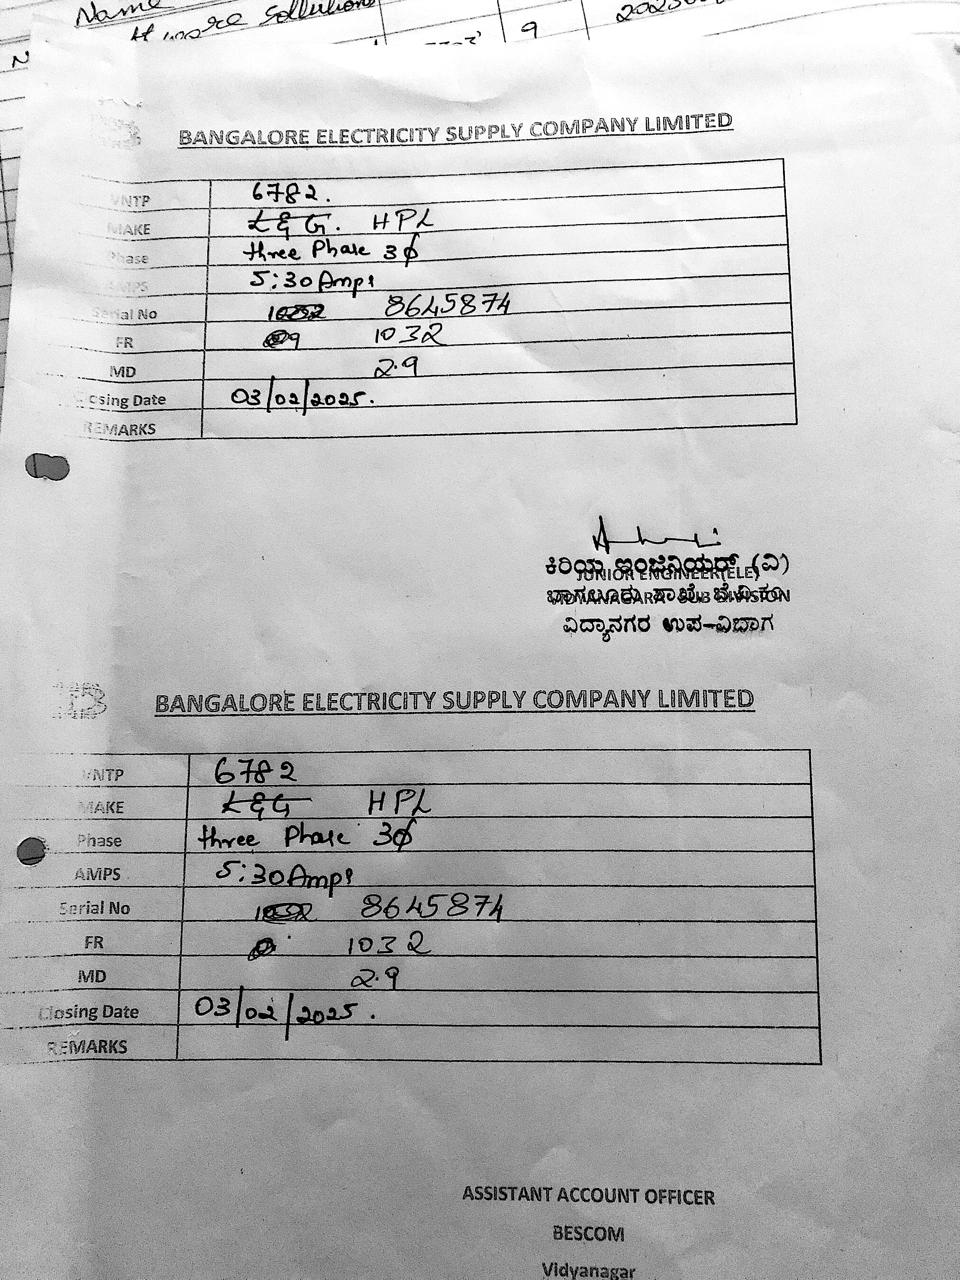 Name
9
BANGALORE ELECTRICITY SUPPLY COMPANY LIMITED
VNTP 6782.
MAKE L&G. HPL
Phase three Phase 3ϕ
AMPS 5:30 Amps
Serial No 8645874
FR 1032
MD 2.9
osing Date 03/02/2025.
REMARKS
ಕಿರಿಯ ಇಂಜಿನಿಯರ್ (ವಿ)
JUNIOR ENGINEER(ELE)
ಬಾಗಲೂರು ಶಾಖೆ ಬೆವಿಕಂ
VIDYANAGARA SUB DIVISION
ವಿದ್ಯಾನಗರ ಉಪ-ವಿಭಾಗ
BANGALORE ELECTRICITY SUPPLY COMPANY LIMITED
VNTP 6782
MAKE L&G HPL
Phase three Phase 3ϕ
AMPS 5:30 Amps
Serial No 8645874
FR 1032
MD 2.9
Closing Date 03/02/2025.
REMARKS
ASSISTANT ACCOUNT OFFICER
BESCOM
Vidyanagar